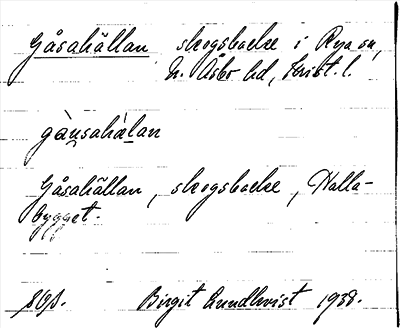 Gåsahällan, skogsbacke i Rya sn,
N. Åsbo hd, Krist. l.
gåu̯sahàlan
Gåsahällan, skogsbacke, Halla-
bygget.
Birgit Lundkvist 1938.